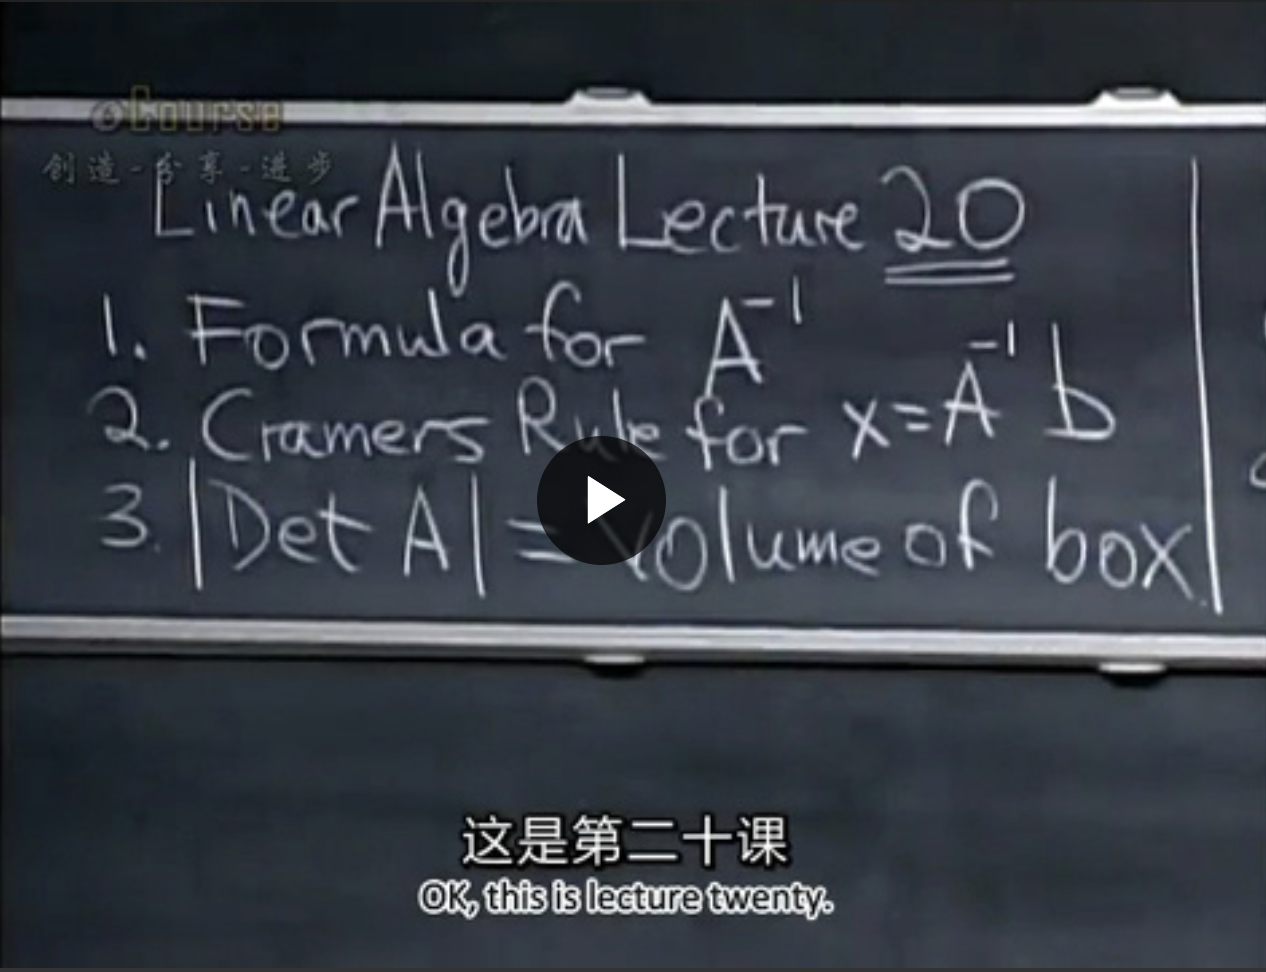 eCourse
創造-分享-进步
Linear Algebra Lecture 20
1. Formula for A⁻¹
2. Cramers Rule for x = A⁻¹ b
3. |Det A| = Volume of box
这是第二十课
OK, this is lecture twenty.